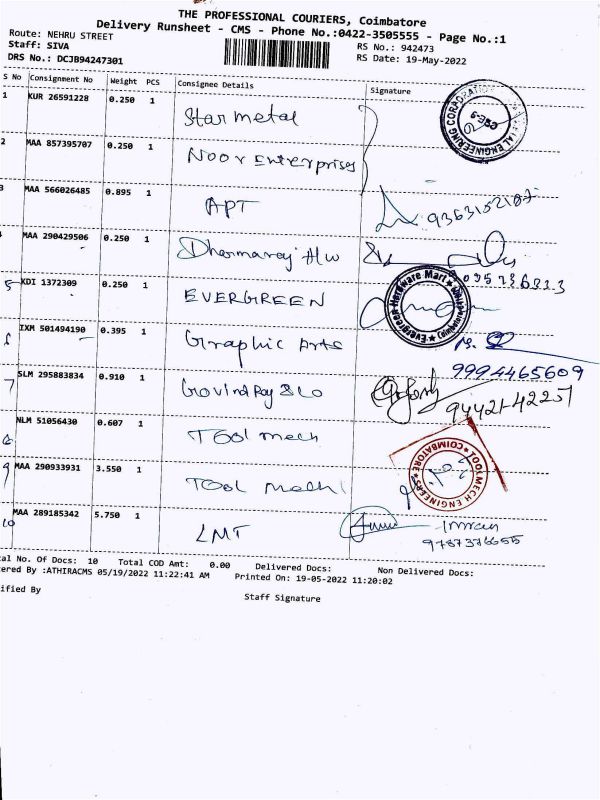 THE PROFESSIONAL COURIERS, Coimbatore
Delivery Runsheet - CMS - Phone No.:0422-3505555 - Page No.:1
Route: NEHRU STREET
Staff: SIVA
RS No.: 942473
DRS No.: DCJB94247301
RS Date: 19-May-2022
S No Consignment No Weight PCS Consignee Details Signature
1 KUR 26591228 0.250 1 Star metal
2 MAA 857395707 0.250 1 Noor Enterprises
3 MAA 566026485 0.895 1 APT
MAA 290429506 0.250 1 Dharmaraj H/w
5 KDI 1372309 0.250 1 EVERGREEN
Evergreen Hardware Mart
IXM 501494190 0.395 1 Graphic Arts
9994465609
7 SLM 295883834 0.910 1 Govind Raj & Co
94421-42257
NLM 51056430 0.607 1 Tool mech
TOOLMECH ENGINEERS COIMBATORE
9 MAA 290933931 3.550 1 Tool mech
10 MAA 289185342 5.750 1 LMT Imran
9787376655
al No. Of Docs: 10 Total COD Amt: 0.00 Delivered Docs: Non Delivered Docs:
ered By :ATHIRACMS 05/19/2022 11:22:41 AM Printed On: 19-05-2022 11:20:02
ified By Staff Signature